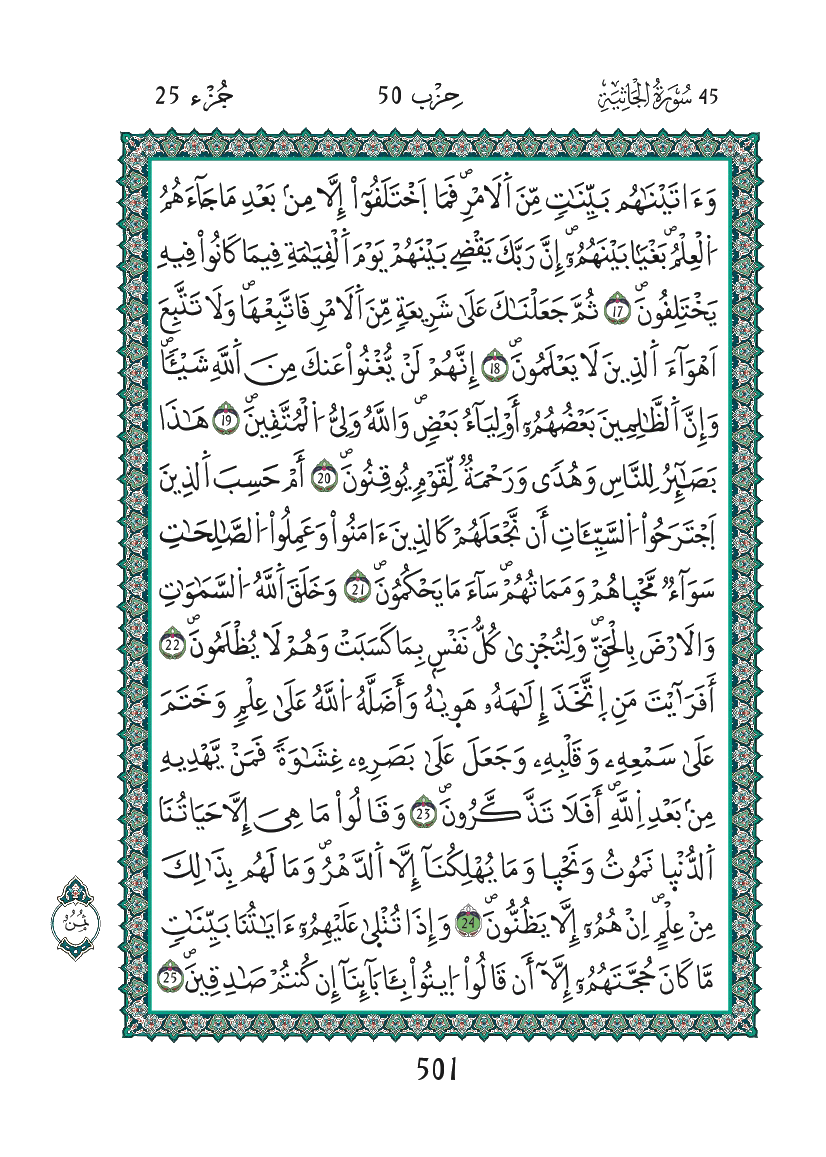 45 سُورَةُ الْجَاثِيَةِ حِزْب 50 جُزْء 25
وَءَاتَيْنَٰهُم بَيِّنَٰتٖ مِّنَ اَ۬لَامْرِۖ فَمَا اَ۪خْتَلَفُوٓاْ إِلَّا مِنۢ بَعْدِ مَا جَآءَهُمُ
اُ۬لْعِلْمُۖ بَغْيَۢا بَيْنَهُمُۥٓۖ إِنَّ رَبَّكَ يَقْضِے بَيْنَهُمْ يَوْمَ اَ۬لْقِيَٰمَةِ فِيمَا كَانُواْ فِيهِ
يَخْتَلِفُونَۖ 17 ثُمَّ جَعَلْنَٰكَ عَلَىٰ شَرِيعَةٖ مِّنَ اَ۬لَامْرِ فَاتَّبِعْهَاۖ وَلَا تَتَّبِعَ
اَهْوَآءَ اَ۬لذِينَ لَا يَعْلَمُونَۖ 18 إِنَّهُمْ لَنْ يُّغْنُواْ عَنكَ مِنَ اَ۬للَّهِ شَيْـٔاٗۖ
وَإِنَّ اَ۬لظَّٰلِمِينَ بَعْضُهُمُۥٓ أَوْلِيَآءُ بَعْضٖۖ وَاللَّهُ وَلِيُّ اُ۬لْمُتَّقِينَۖ 19 هَٰذَا
بَصَٰٓئِرُ لِلنَّاسِ وَهُدىٗ وَرَحْمَةٞ لِّقَوْمٖ يُوقِنُونَۖ 20 أَمْ حَسِبَ اَ۬لذِينَ
اَ۪جْتَرَحُواْ اُ۬لسَّيِّـَٔاتِ أَن نَّجْعَلَهُمْ كَالذِينَ ءَامَنُواْ وَعَمِلُواْ اُ۬لصَّٰلِحَٰتِ
سَوَآءٞ مَّحْي۪اهُمْ وَمَمَاتُهُمْۖ سَآءَ مَا يَحْكُمُونَۖ 21 وَخَلَقَ اَ۬للَّهُ اُ۬لسَّمَٰوَٰتِ
وَالَارْضَ بِالْحَقِّۖ وَلِتُجْز۪ىٰ كُلُّ نَفْسِۢ بِمَا كَسَبَتْ وَهُمْ لَا يُظْلَمُونَۖ 22
أَفَرَٰٓيْتَ مَنِ اِ۪تَّخَذَ إِلَٰهَهُۥ هَو۪يٰهُ وَأَضَلَّهُ اُ۬للَّهُ عَلَىٰ عِلْمٖ وَخَتَمَ
عَلَىٰ سَمْعِهِۦ وَقَلْبِهِۦ وَجَعَلَ عَلَىٰ بَصَرِهِۦ غِشَٰوَةٗۖ فَمَنْ يَّهْدِيهِ
مِنۢ بَعْدِ اِ۬للَّهِۖ أَفَلَا تَذَّكَّرُونَۖ 23 وَقَالُواْ مَا هِيَ إِلَّا حَيَاتُنَا
اَ۬لدُّنْي۪ا نَمُوتُ وَنَحْي۪ا وَمَا يُهْلِكُنَآ إِلَّا اَ۬لدَّهْرُۖ وَمَا لَهُم بِذَٰلِكَ
مِنْ عِلْمٍۖ اِنْ هُمُۥٓ إِلَّا يَظُنُّونَۖ 24 وَإِذَا تُتْل۪ىٰ عَلَيْهِمُۥٓ ءَايَٰتُنَا بَيِّنَٰتٖ
مَّا كَانَ حُجَّتَهُمُۥٓ إِلَّآ أَن قَالُواْ اُ۪يتُواْ بِـَٔابَآئِنَآ إِن كُنتُمْ صَٰدِقِينَۖ 25
ثُمُن
501